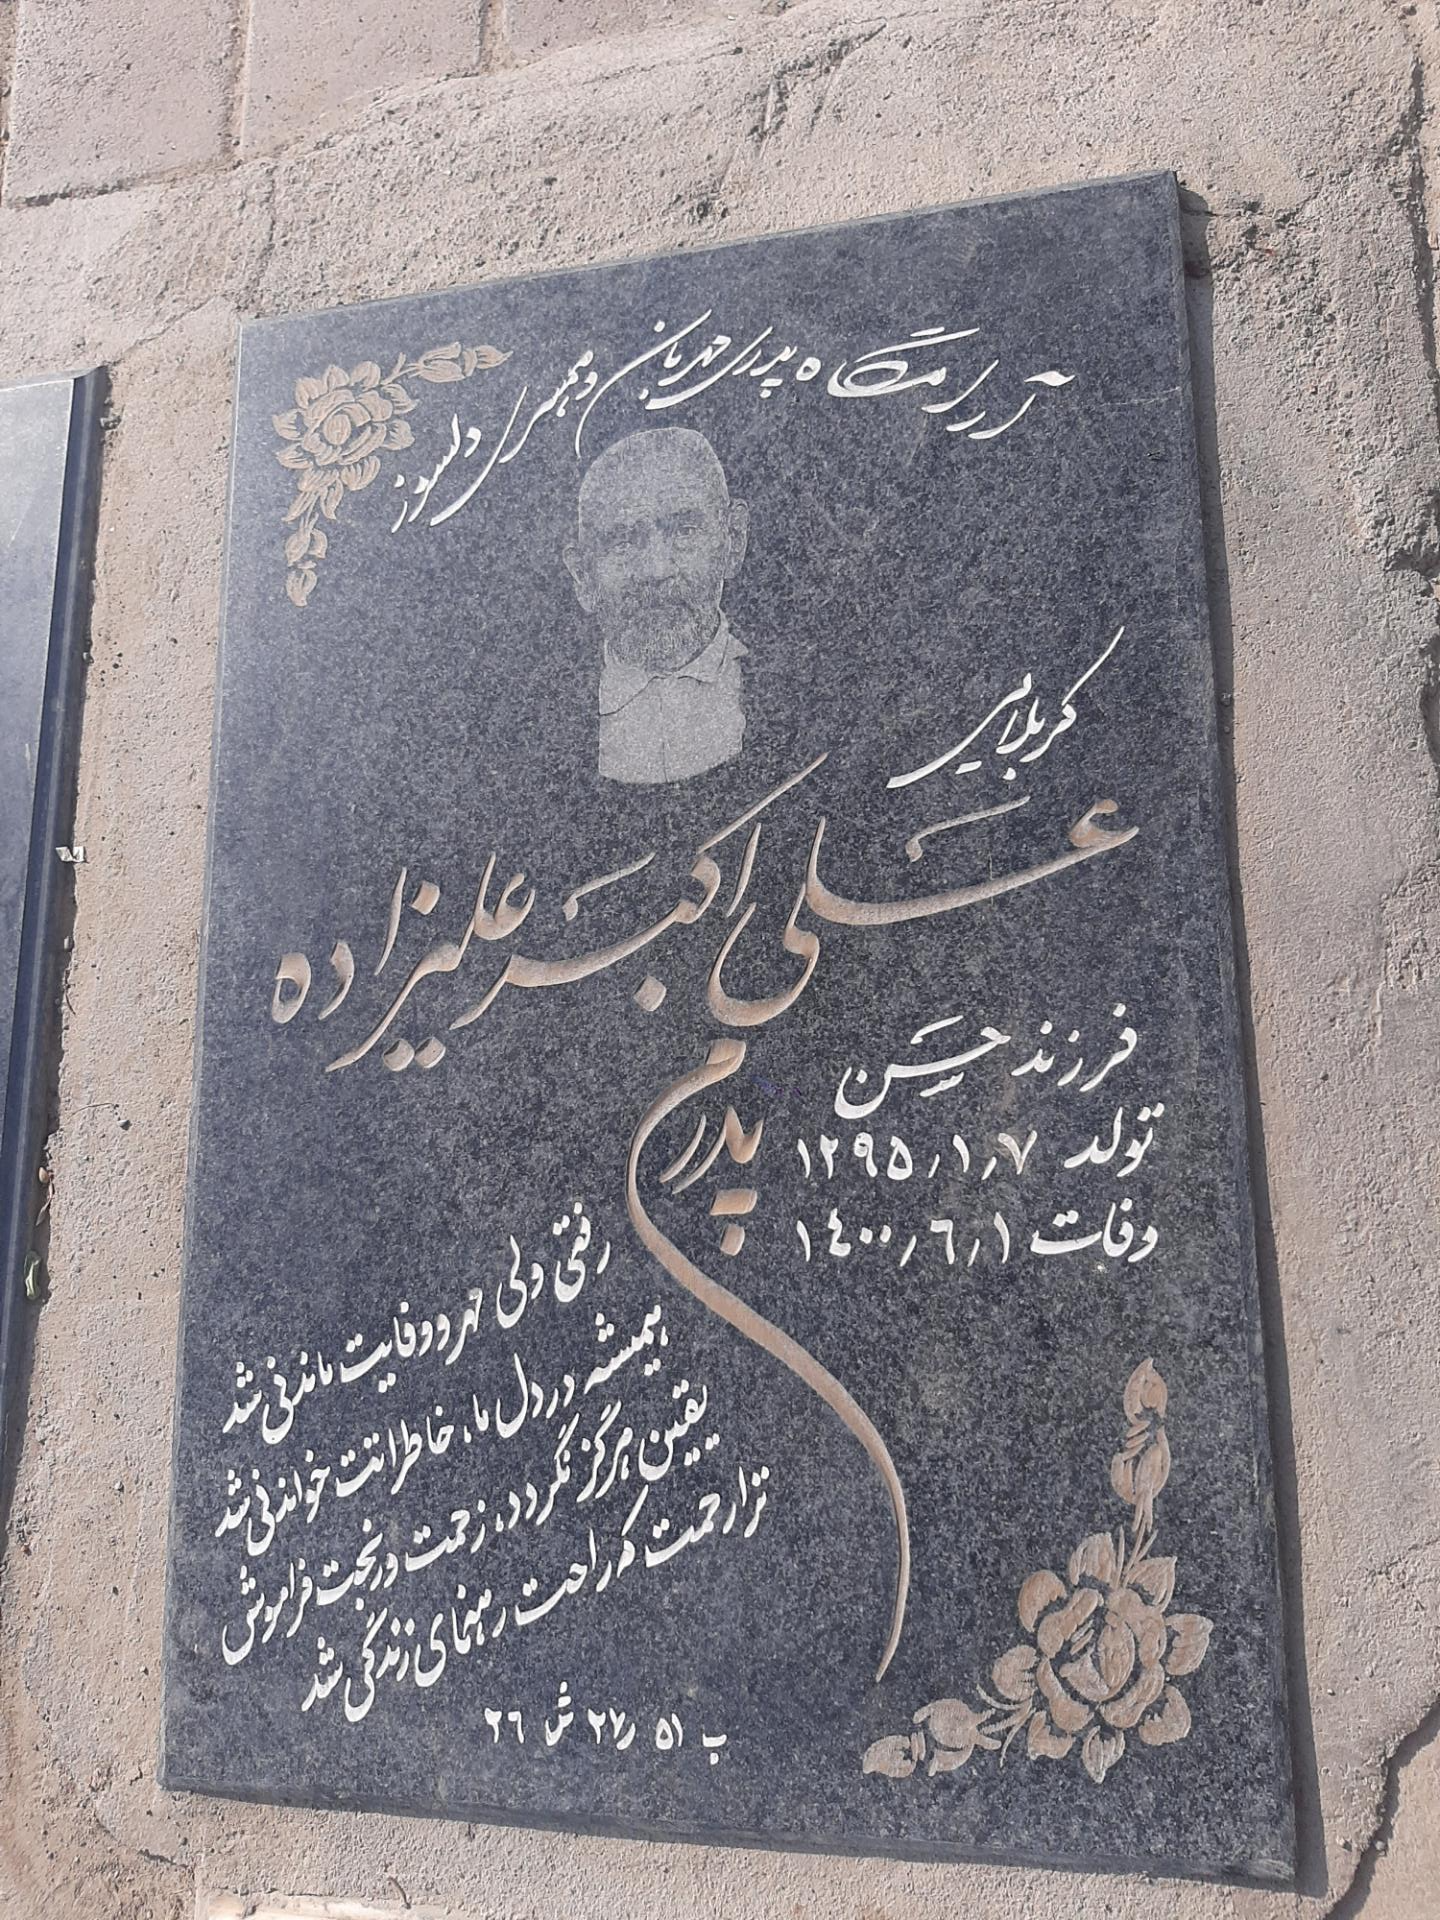 آرامگاه پدری مهربان و همسری دلسوز
کربلایی
علی اکبر علیزاده
فرزند حسن
تولد ۱۲۹۵٫۱٫۷
وفات ۱٤۰۰٫٦٫۱
پدرم
رفتی ولی مهر و وفایت ماندنی شد
همیشه در دل ما، خاطراتت خواندنی شد
یقین هرگز نگردد، زحمت و رنجت فراموش
مزارحمت که راحت رهنمای زندگی شد
ب ۵۱ ر ۲۷ ش ۲٦